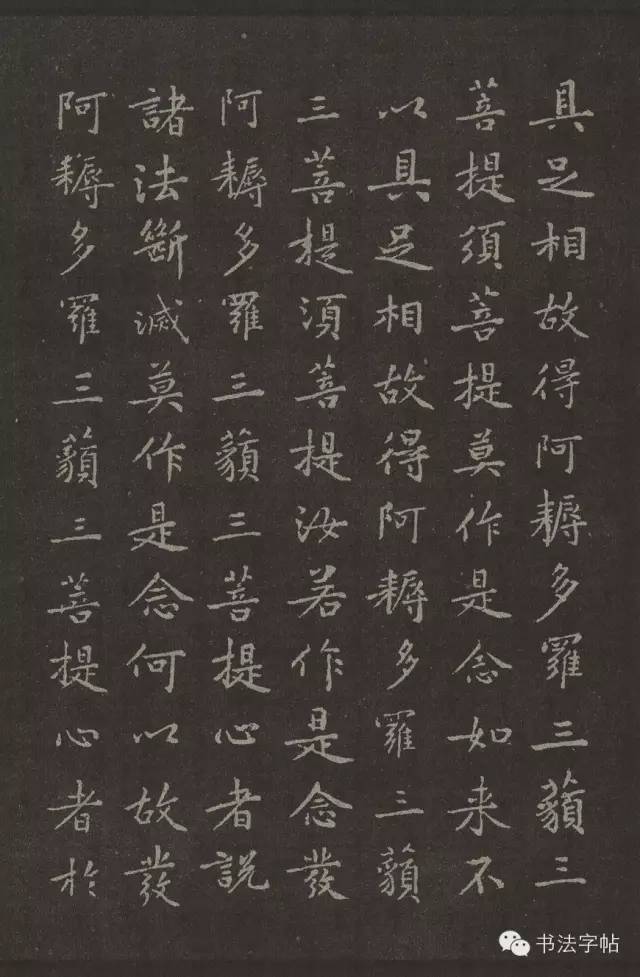 具足相故得阿耨多羅三藐三
菩提須菩提莫作是念如来不
以具足相故得阿耨多羅三藐
三菩提須菩提汝若作是念發
阿耨多羅三藐三菩提心者説
諸法斷滅莫作是念何以故發
阿耨多羅三藐三菩提心者於
书法字帖